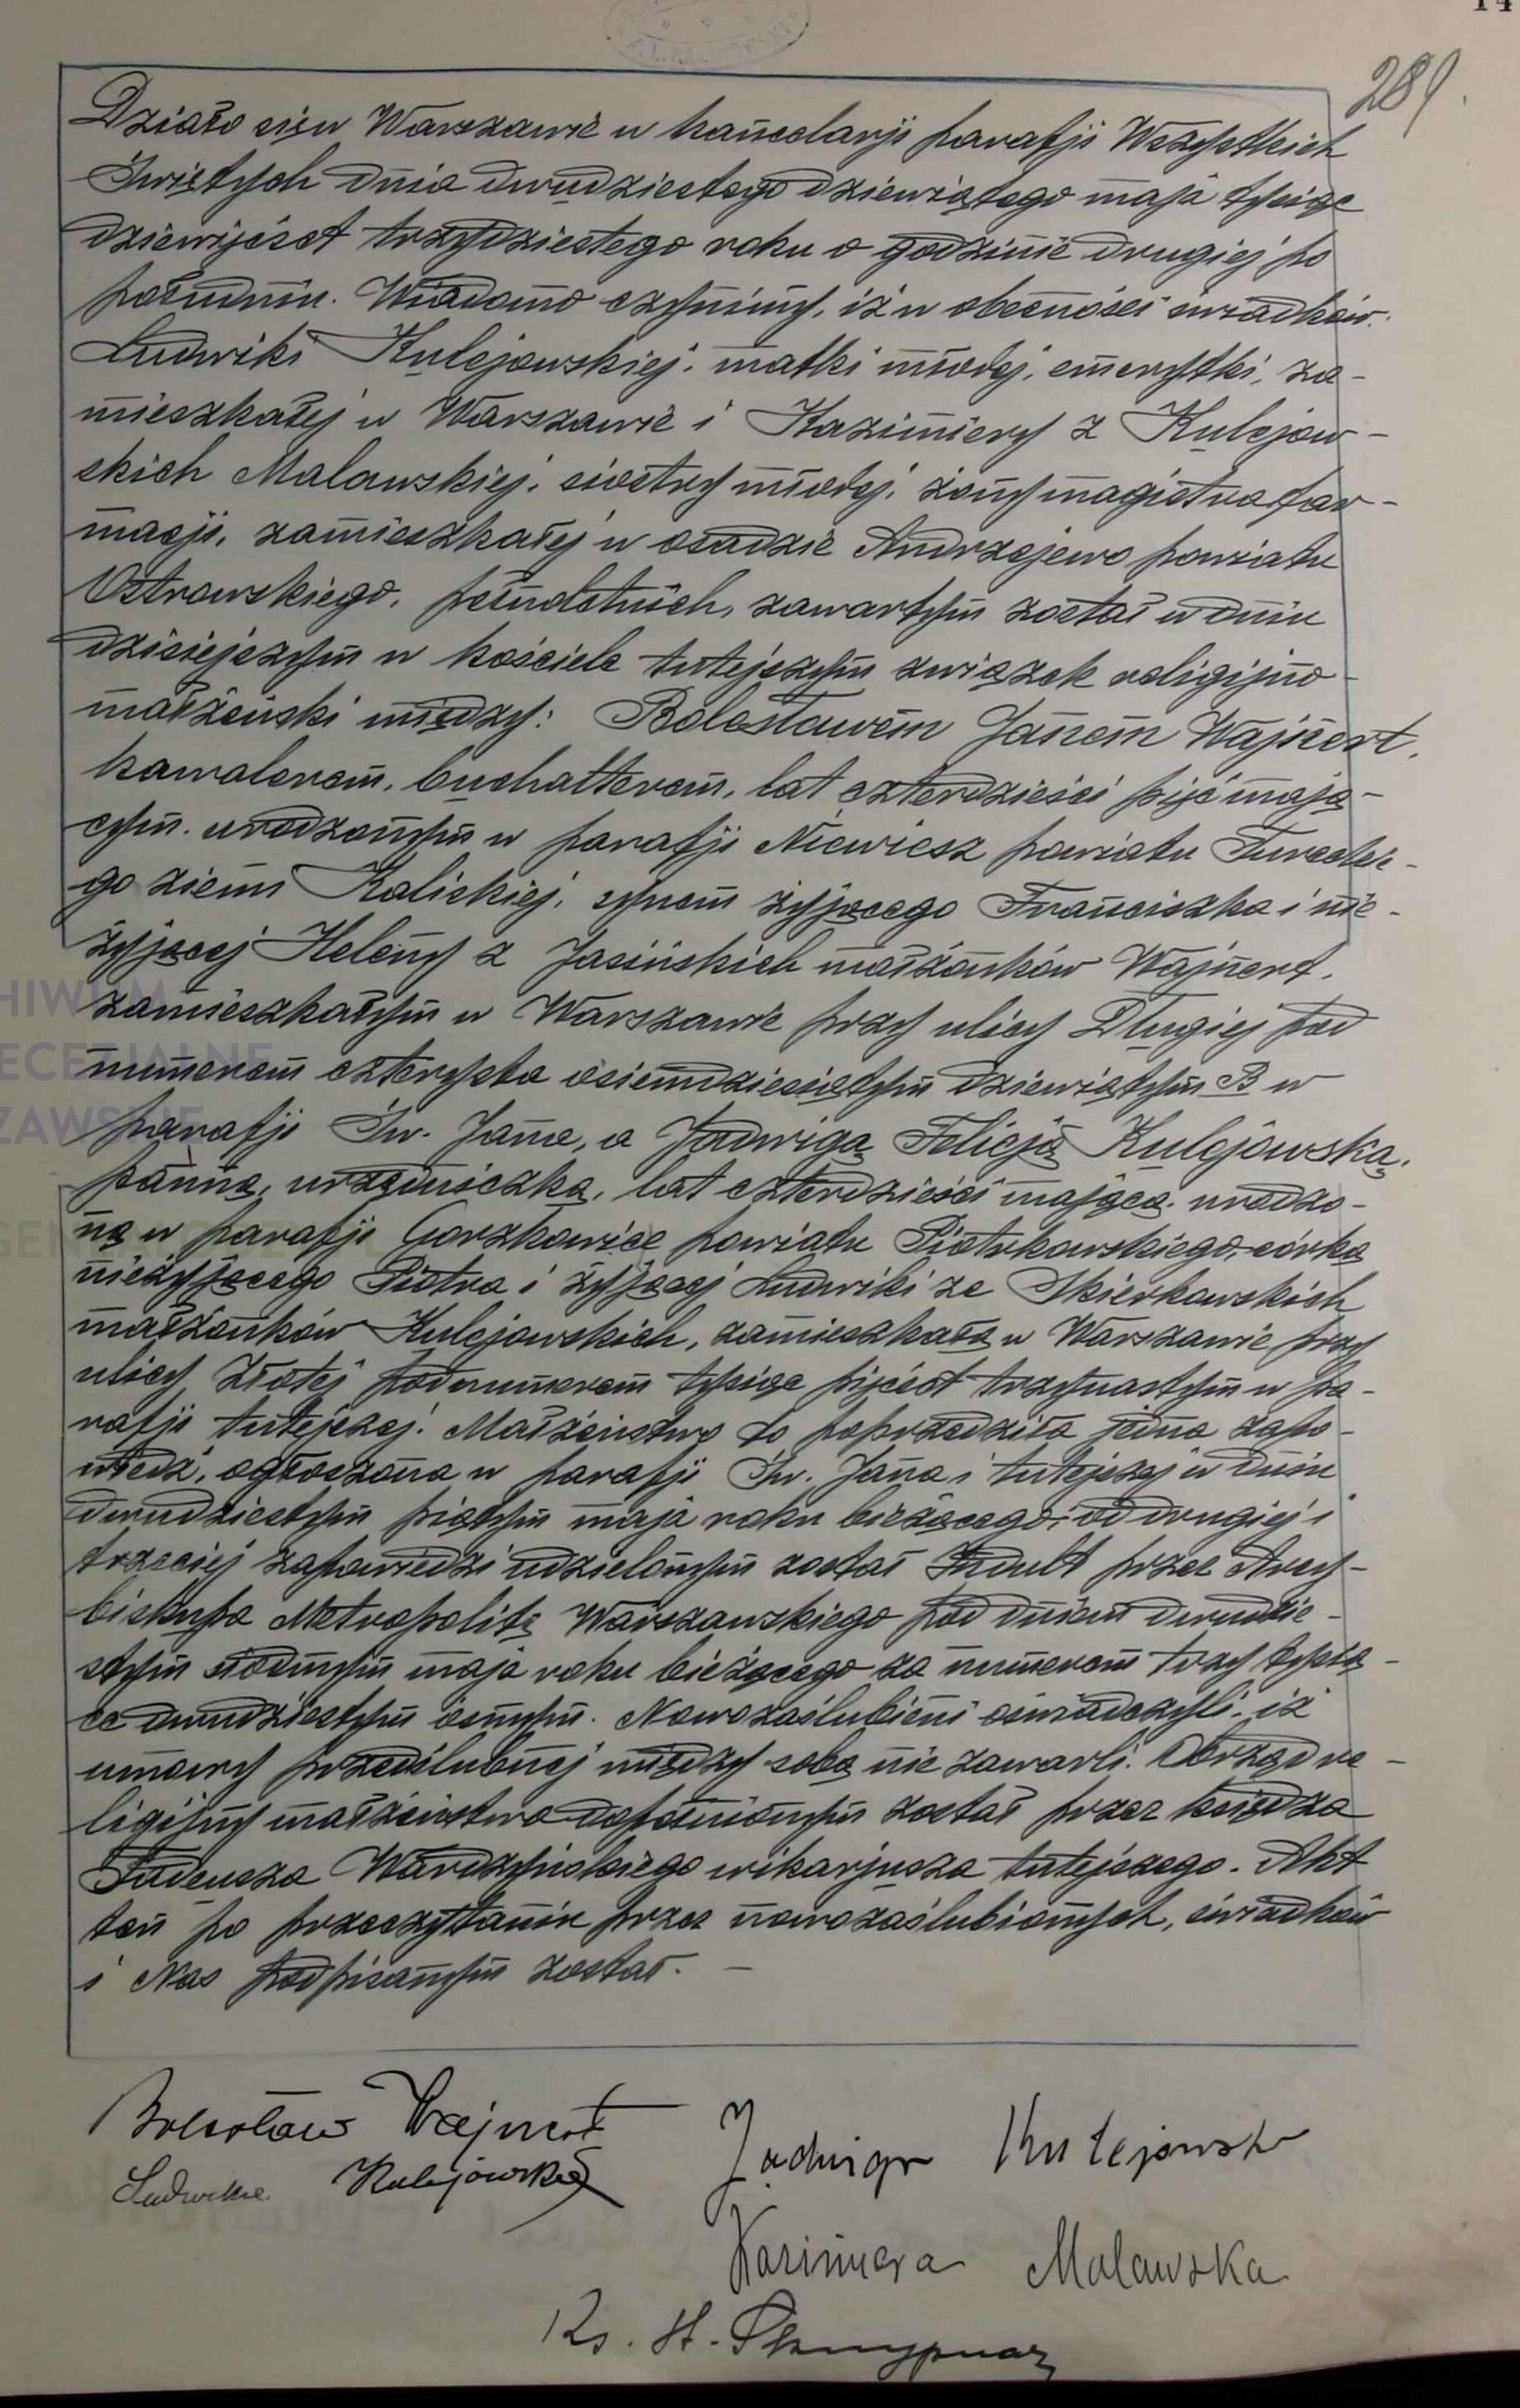 14
289.
Działo się w Warszawie w kancelarji parafji Wszystkich
Świętych dnia dwudziestego dziewiątego maja tysiąc
dziewięćset trzydziestego roku o godzinie drugiej po
południu. Wiadomo czynimy, iż w obecności świadków:
Ludwiki Kulejowskiej, matki młodej, emerytki, za-
mieszkałej w Warszawie i Kazimiery z Kulejow-
skich Malawskiej, siostry młodej, żony magistra far-
macji, zamieszkałej w osadzie Andrzejewo powiatu
Ostrowskiego, pełnoletnich, zawartym został w dniu
dzisiejszym w kościele tutejszym związek religijno-
małżeński między: Bolesławem Janem Wajnert,
kawalerem, buchalterem, lat czterdzieści pięć mają-
cym, urodzonym w parafji Niewiesz powiatu Tureckie-
go ziemi Kaliskiej, synem żyjącego Franciszka i nie-
żyjącej Heleny z Jasińskich małżonków Wajnert,
zamieszkałym w Warszawie przy ulicy Długiej pod
numerem czterysta osiemdziesiątym dziewiątym B w
parafji Św. Jana, a Jadwigą Felicją Kulejowską,
panną, urzędniczką, lat czterdzieści mającą, urodzo-
ną w parafji Gorzkowice powiatu Piotrkowskiego, córką
nieżyjącego Piotra i żyjącej Ludwiki ze Skierkowskich
małżonków Kulejowskich, zamieszkałą w Warszawie przy
ulicy Złotej pod numerem tysiąc pięćset trzynastym w pa-
rafji tutejszej. Małżeństwo to poprzedziła jedna zapo-
wiedź, ogłoszona w parafji Św. Jana i tutejszej w dniu
dwudziestym piątym maja roku bieżącego; od drugiej i
trzeciej zapowiedzi udzielonym został Indult przez Arcy-
biskupa Metropolitę Warszawskiego pod dniem dwudzie-
stym siódmym maja roku bieżącego za numerem trzy tysią-
ce dwudziestym ósmym. Nowozaślubieni oświadczyli, iż
umowy przedślubnej między sobą nie zawarli. Obrzęd re-
ligijny małżeństwa dopełnionym został przez księdza
Tadeusza Wardzyńskiego wikarjusza tutejszego. Akt
ten po przeczytaniu przez nowozaślubionych, świadków
i Nas podpisanym został. —
Bolesław Wajnert Jadwiga Kulejowska
Ludwika Kulejowska
Kazimiera Malawska
Ks. H.